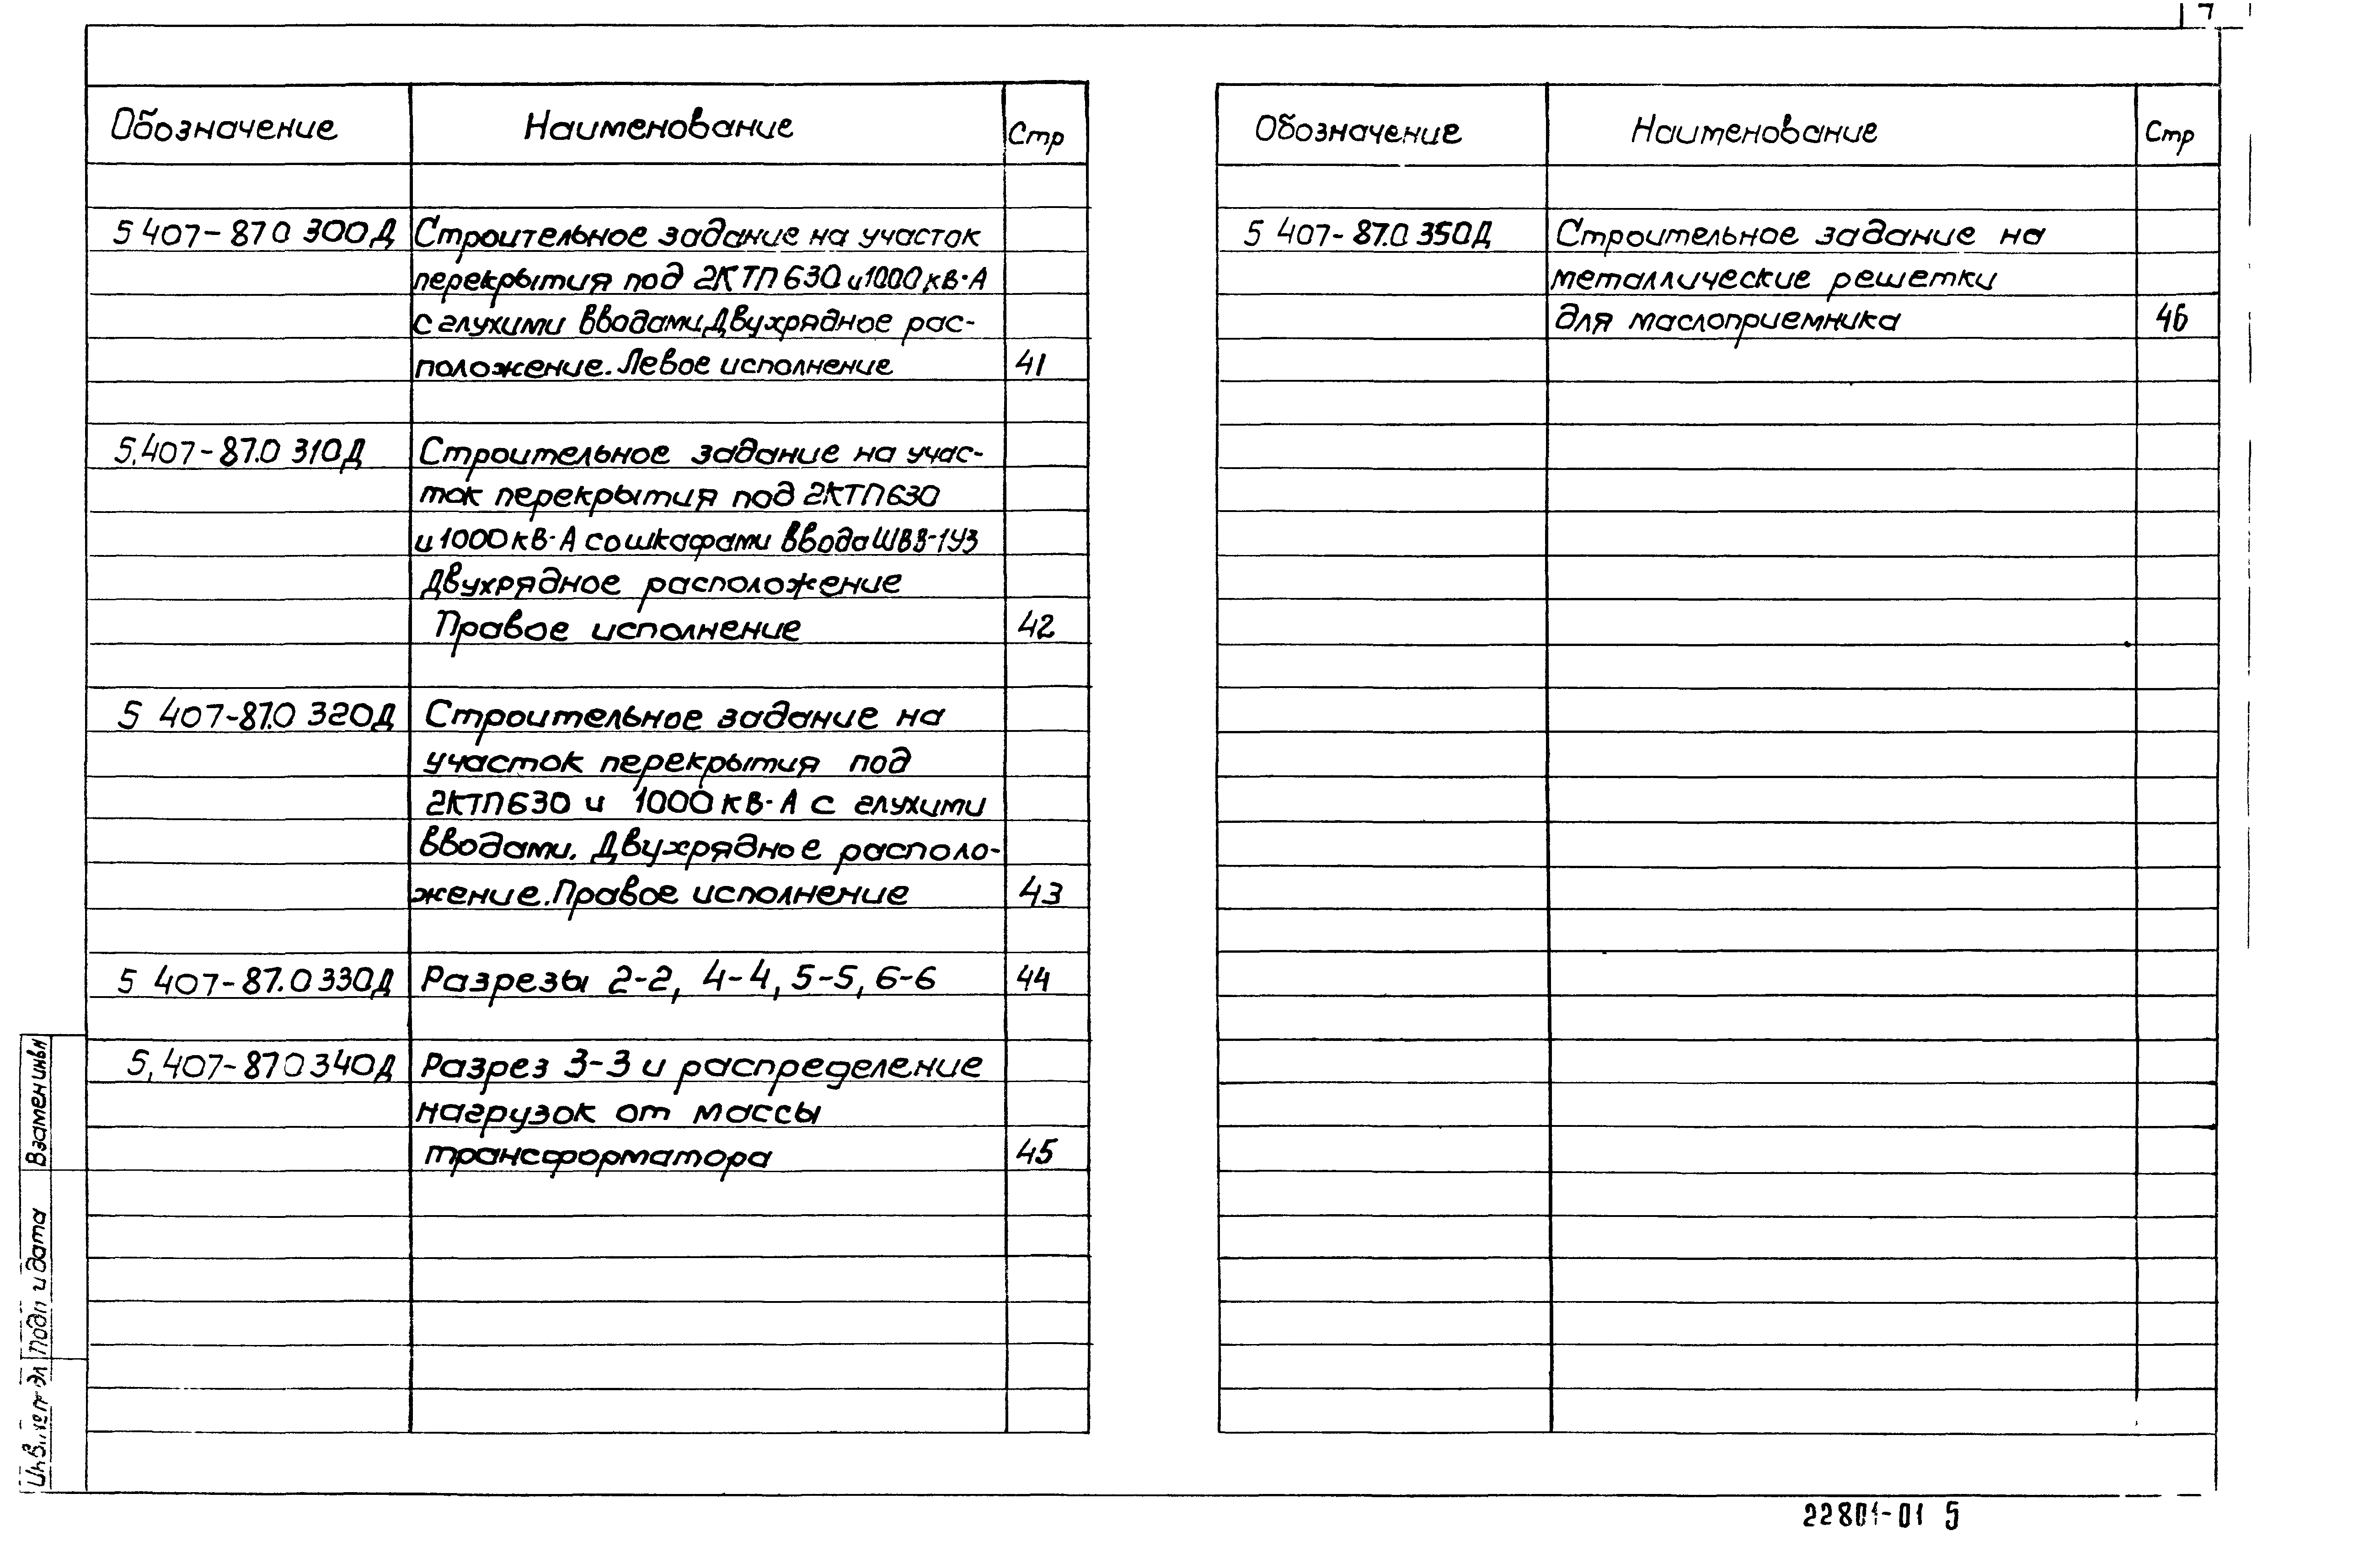 7
Обозначение Наименование Стр
5 407-87 0 300Д Строительное задание на участок
перекрытия под 2КТП 630 и 1000 кв·А
с глухими вводами. Двухрядное рас-
положение. Левое исполнение 41
5.407-87.0 310Д Строительное задание на учас-
ток перекрытия под 2КТП630
и 1000 кв·А со шкафами ввода ШВВ-1У3
Двухрядное расположение
Правое исполнение 42
5 407-87.0 320Д Строительное задание на
участок перекрытия под
2КТП630 и 1000 кв·А с глухими
вводами. Двухрядное располо-
жение. Правое исполнение 43
5 407-87.0 330Д Разрезы 2-2, 4-4, 5-5, 6-6 44
5.407-87 0 340Д Разрез 3-3 и распределение
нагрузок от массы
трансформатора 45
Обозначение Наименование Стр
5 407-87.0 350Д Строительное задание на
металлические решетки
для маслоприемника 46
Взамен инв
Подп и дата
Инв.
22801-01 5